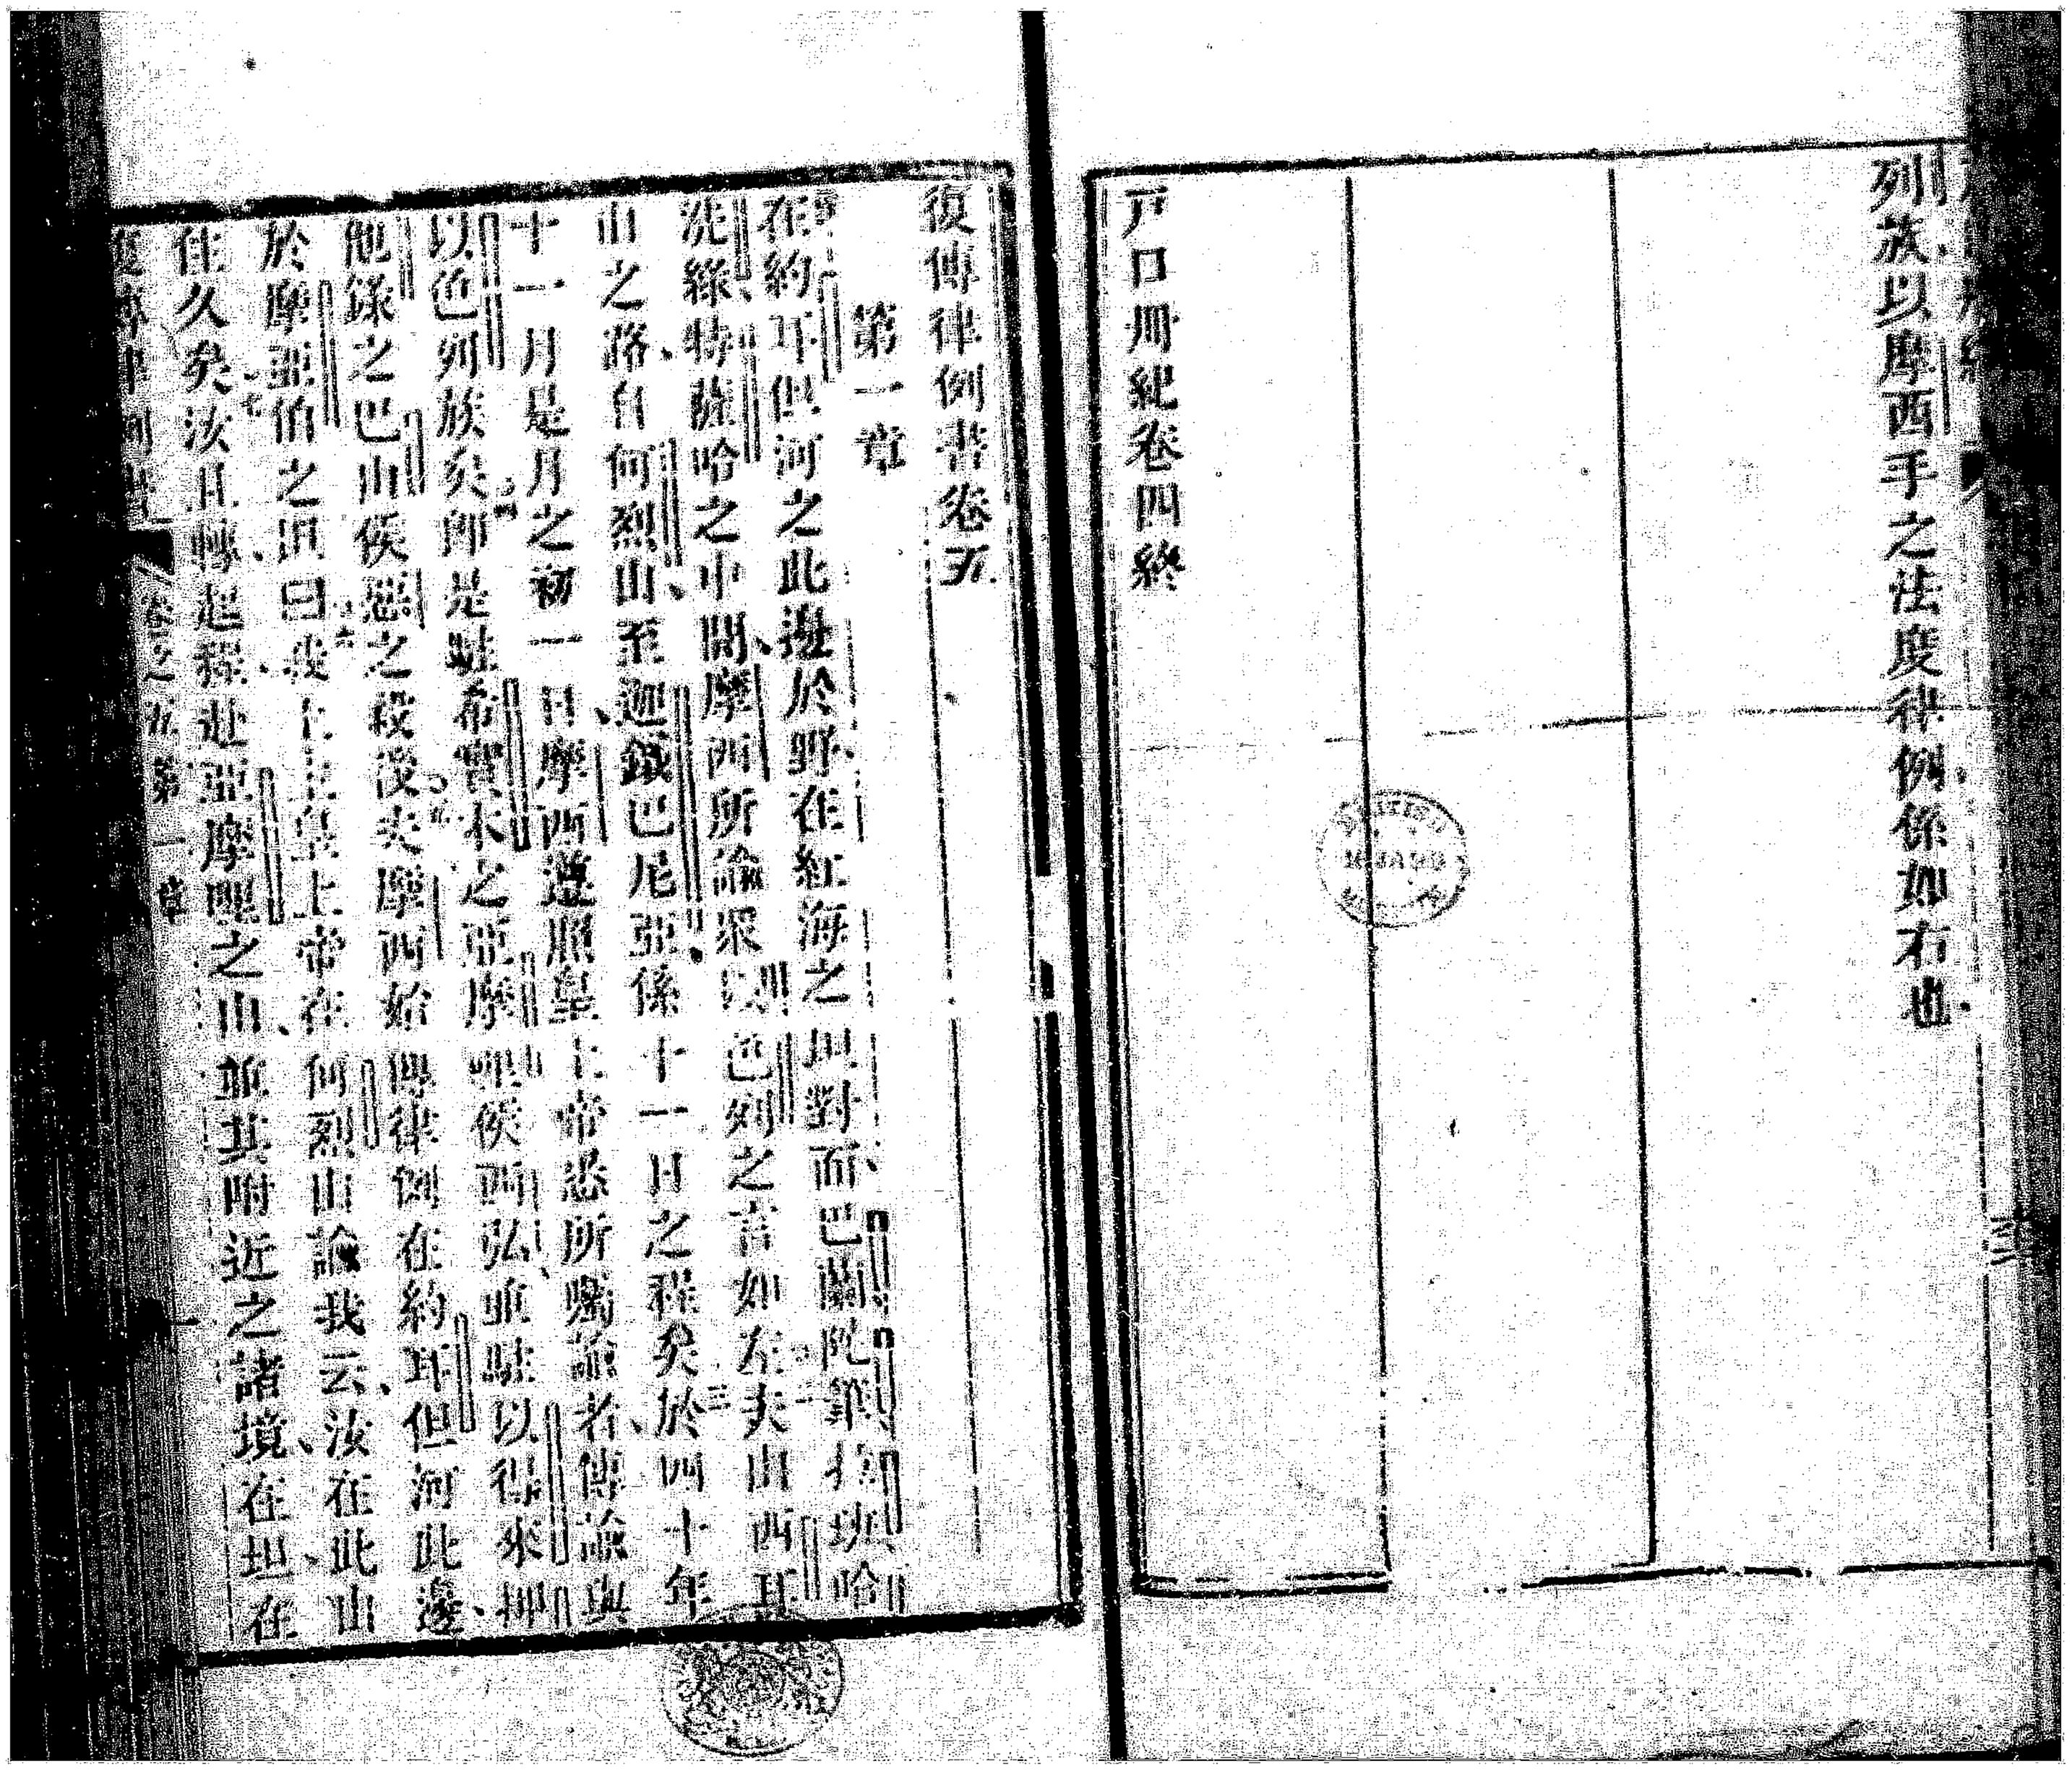 列族以摩西手之法度律例、係如右也.
戶口冊紀卷四終
復傳律例書卷五
第一章
在約耳但河之此邊於野、在紅海之坦對面、巴蘭陀弗拉班哈
洗錄、特薩哈之中間、摩西所諭眾以色列之言如左二夫由西耳
山之路、自何烈山、至迦鉄巴尼亞、係十一日之程矣三於四十年
十一月是月之初一日、摩西遵照皇上帝悉所囑諭者、傳諭與
以色列族矣四即是駐希實本之亞摩哩侯西弘、並駐以得來押
他錄之巴山侯惡之殺沒五夫摩西始傳律例在約耳但河此邊、
於摩亞伯之坦曰六我上主皇上帝在何烈山諭我云、汝在此山
住久矣七汝且轉、起程、赴亞摩哩之山、並其附近之諸境、在坦、在
復傳律例書 卷之五 第一章 一